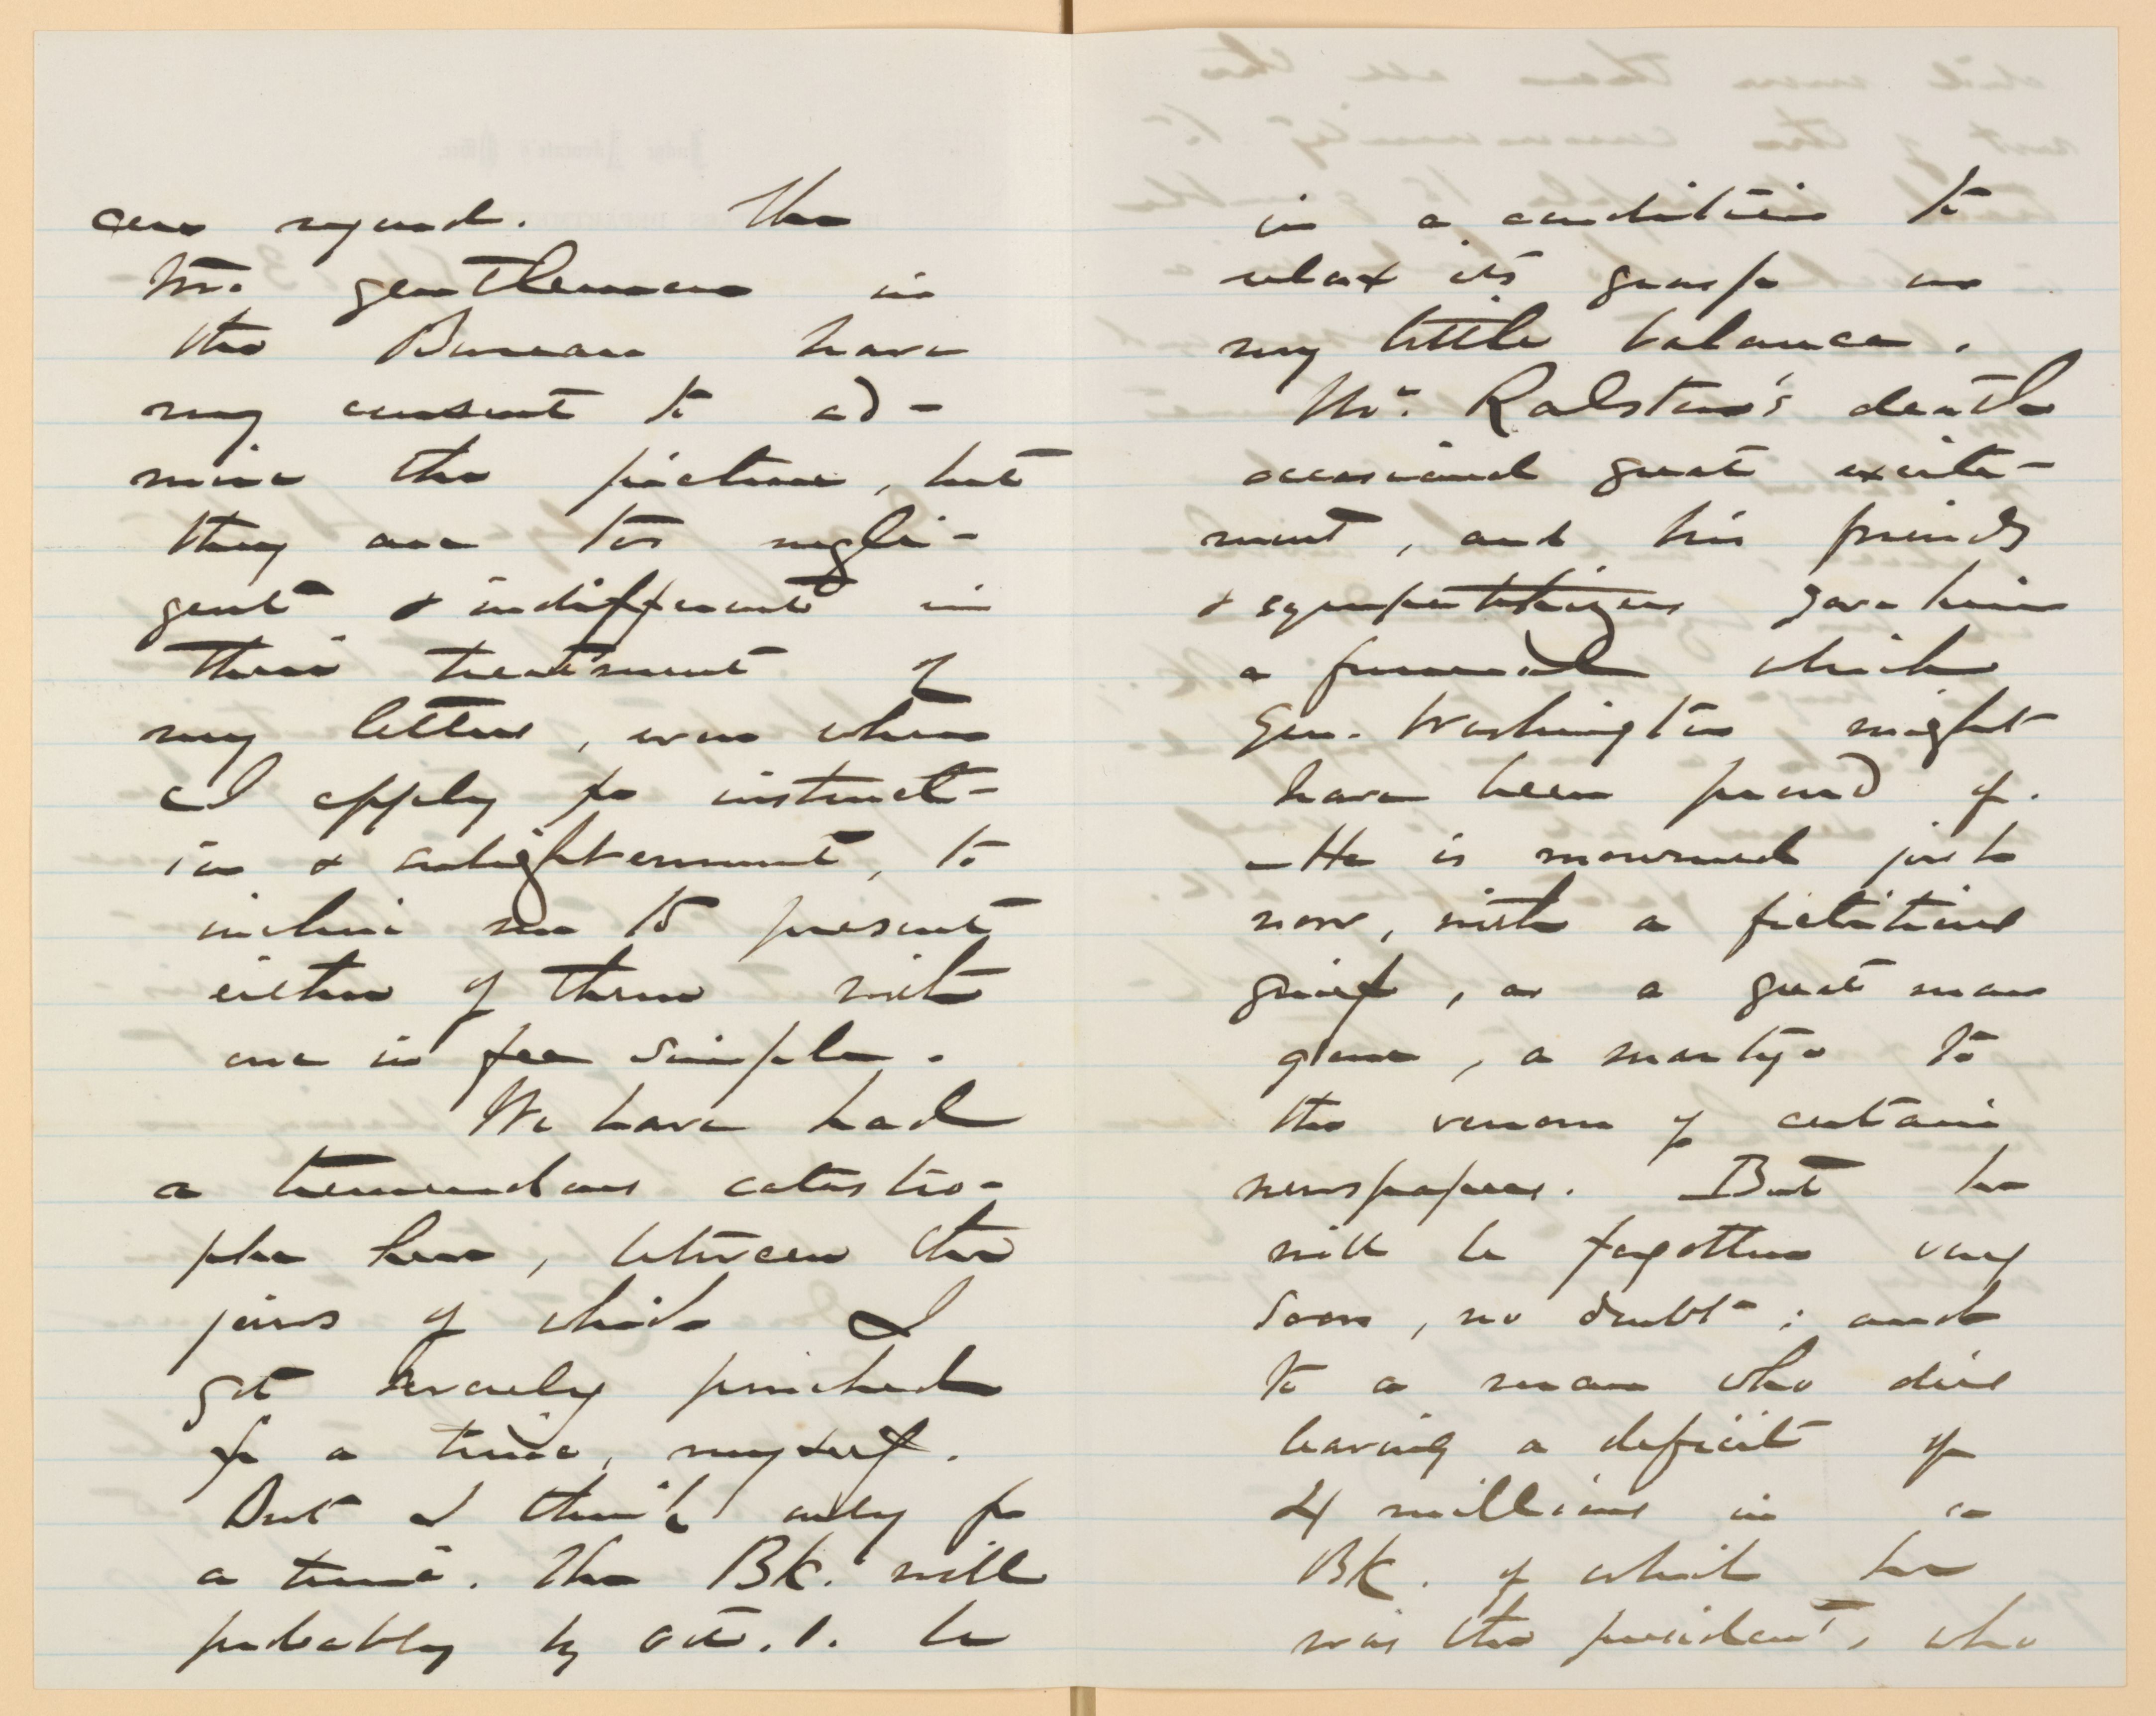 can spend. The
two gentlemen in
the Bureau have
my consent to ad-
mire the picture, but
they are too negli-
gent & indifferent in
their treatment of
my letters, even when
I apply for instruct-
ion & enlightenment, to
incline me to present
either of them with
one in fee simple.
We have had
a tremendous catastro-
phe here, between the
jaws of which I
got severely pinched
for a time, myself.
But I think only for
a time. The Bk. will
probably by Oct. 1. be
in a condition to
relax its grasp on
my little balance.
Mr. Ralston's death
occasioned great excite-
ment, and his friends
& sympathizers gave him
a funeral which
Gen. Washington might
have been proud of.
He is mourned just
now, with a fictitious
grief, as a great man
gone, a martyr to
the venom of certain
newspapers. But he
will be forgotten very
soon, no doubt; and
to a man who dies
leaving a deficit of
4 millions in a
Bk. of which he
was the president, who